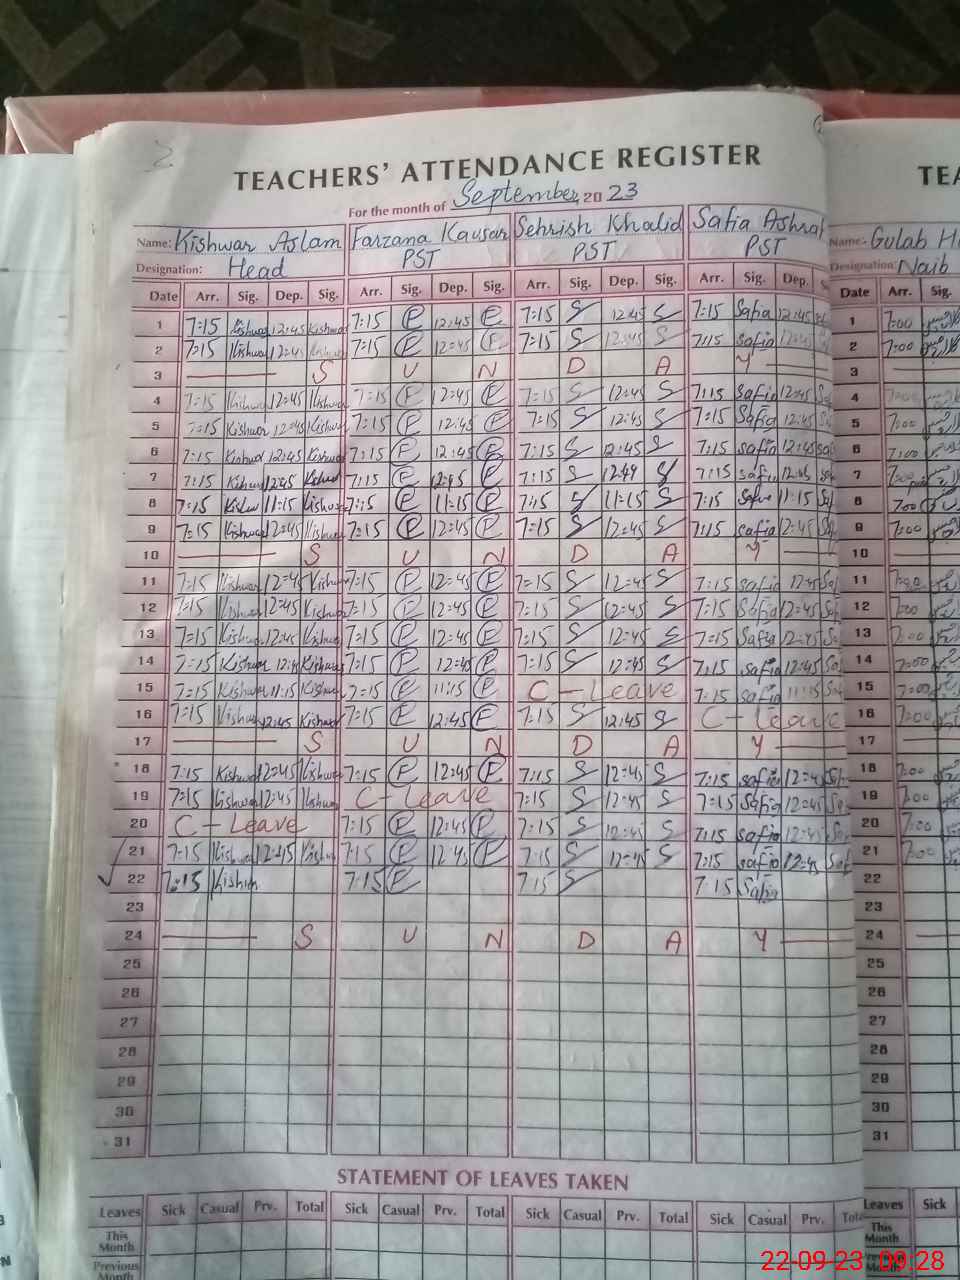 2
TEACHERS' ATTENDANCE REGISTER
For the month of September, 20 23
Name: Kishwar Aslam Farzana Kausar Sehrish Khalid Safia Ashraf
Designation: Head PST PST PST
Date Arr. Sig. Dep. Sig. Arr. Sig. Dep. Sig. Arr. Sig. Dep. Sig. Arr. Sig. Dep.
1 7:15 Kishwar 12:45 Kishwar 7:15 P 12:45 P 7:15 S 12:45 S 7:15 Safia 12:45
2 7:15 Kishwar 12:45 Kishwar 7:15 P 12:45 P 7:15 S 12:45 S 7:15 Safia 12:45
3 S U N D A Y
4 7:15 Kishwar 12:45 Kishwar 7:15 P 12:45 P 7:15 S 12:45 S 7:15 Safia 12:45
5 7:15 Kishwar 12:45 Kishwar 7:15 P 12:45 P 7:15 S 12:45 S 7:15 Safia 12:45
6 7:15 Kishwar 12:45 Kishwar 7:15 P 12:45 P 7:15 S 12:45 S 7:15 safia 12:45
7 7:15 Kishwar 12:45 7:15 P 12:45 P 7:15 S S 7:15 safia 12:45
8 7:15 11:15 Kishwar 7:15 P 11:15 P S 11:15 S 7:15 11:15
9 7:15 Kishwar 12:45 Kishwar 7:15 P 12:45 P 7:15 S 12:45 S 7:15 safia 12:45
10 S U N D A Y
11 7:15 Kishwar 12:45 Kishwar 7:15 P 12:45 P 7:15 S 12:45 S 7:15 safia 12:45
12 7:15 Kishwar 12:45 Kishwar 7:15 P 12:45 P 7:15 S 12:45 S 7:15 Safia 12:45
13 7:15 Kishwar 12:45 Kishwar 7:15 P 12:45 P 7:15 S 12:45 S 7:15 Safia 12:45
14 7:15 Kishwar 12:45 Kishwar 7:15 P 12:45 P 7:15 S 12:45 S 7:15 safia 12:45
15 7:15 Kishwar 11:15 Kishwar 7:15 P 11:15 P C - Leave 7:15 safia 11:15
16 7:15 Kishwar 12:45 Kishwar 7:15 P 12:45 P 7:15 S 12:45 S C - Leave
17 S U N D A Y
18 7:15 Kishwar 12:45 Kishwar 7:15 P 12:45 P 7:15 S 12:45 S 7:15 safia 12:45
19 7:15 Kishwar 12:45 Kishwar C - Leave 7:15 S 12:45 S 7:15 Safia 12:45
20 C - Leave 7:15 P 12:45 P 7:15 S 12:45 S 7:15 safia 12:45
21 7:15 Kishwar 12:45 Kishwar 7:15 P 12:45 P 7:15 S 12:45 S 7:15 safia 12:45
22 7:15 Kishwar 7:15 P 7:15 S 7:15 Safia
23
24 S U N D A Y
25
26
27
28
29
30
31
STATEMENT OF LEAVES TAKEN
Leaves Sick Casual Prv. Total Sick Casual Prv. Total Sick Casual Prv. Total Sick Casual Prv.
This Month
Previous Month
Name: Gulab
Designation: Naib
Date Arr. Sig.
1 7:00
2 7:00
3
4 7:00
5 7:00
6 7:00
7 7:00
8 7:00
9 7:00
10
11 7:00
12 7:00
13 7:00
14 7:00
15 7:00
16 7:00
17
18 7:00
19 7:00
20 7:00
21 7:00
22
23
24
25
26
27
28
29
30
31
Leaves Sick
This Month
Previous Month
22-09-23 09:28